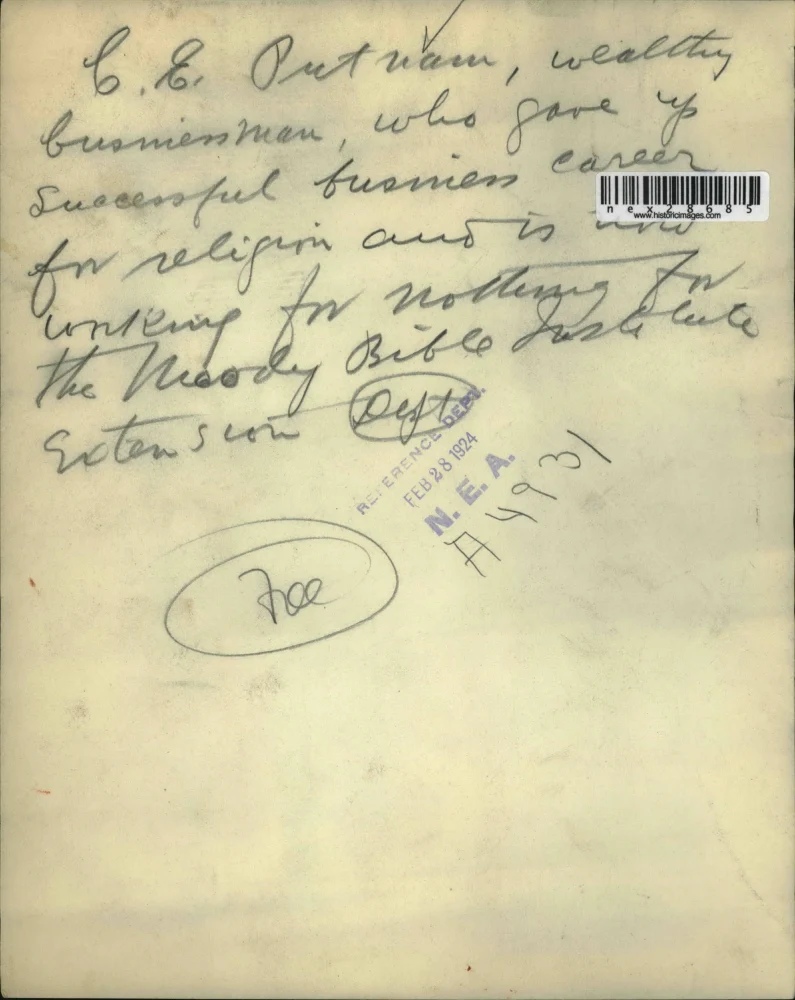 C. E. Putnam, wealthy
businessman, who gave up
successful business career
nex28685
www.historicimages.com
for religion and is now
working for nothing for
the Moody Bible Institute
Extension Dept
REFERENCE DEPT.
FEB 28 1924
N. E. A.
A4931